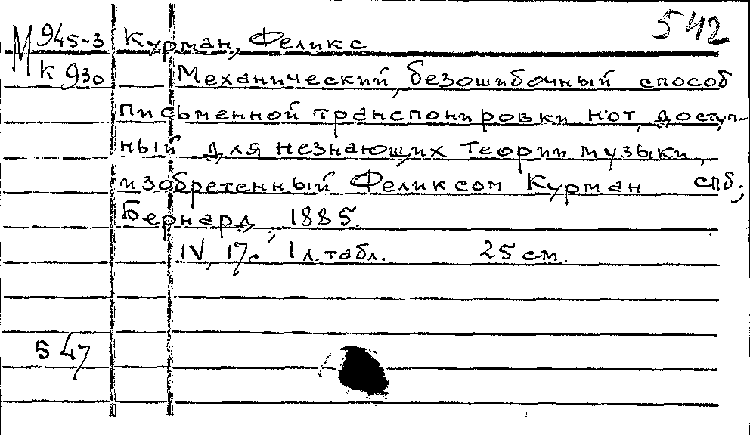 542
М 945-3 Курман, Феликс
К 930 Механический, безошибочный способ
письменной транспонировки нот, доступ-
ный для незнающих теории музыки,
изобретенный Феликсом Курман спб;
Бернард, 1885.
IV, 17. 1 л. табл. 25 см.
547